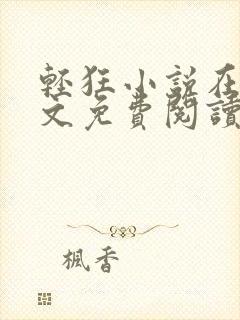 輕狂小說在
文免費閱讀
楓香